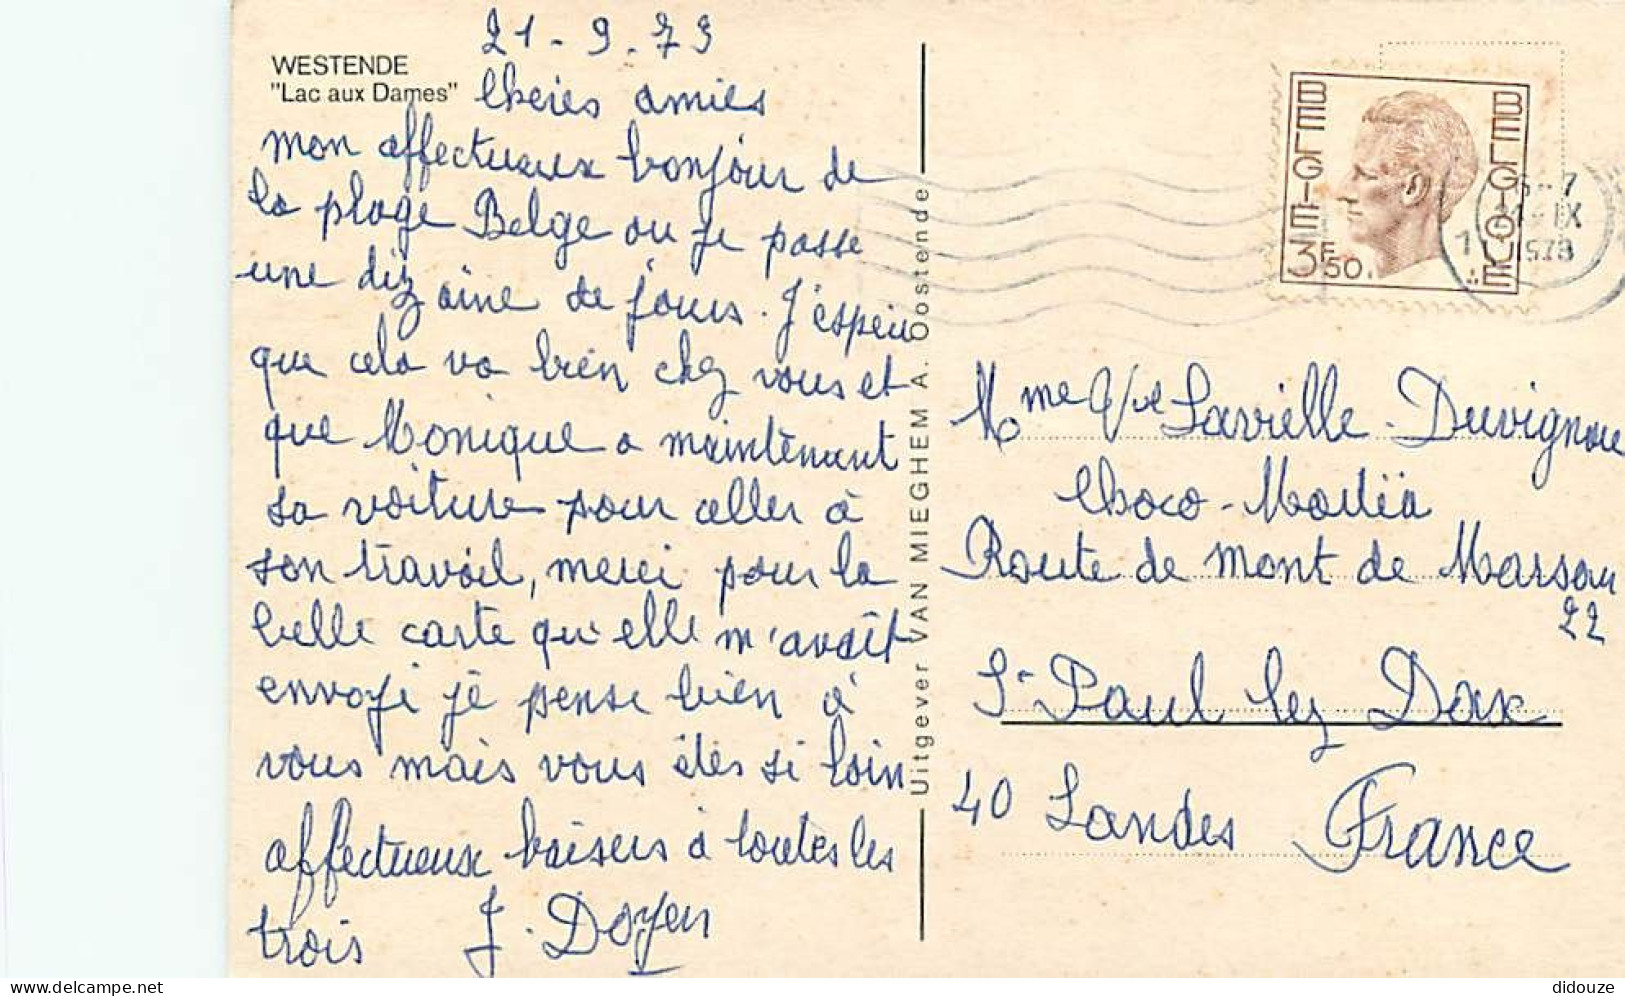 21-9-73
WESTENDE
"Lac aux Dames"
Cheres amies
mon affectueux bonjour de
la plage Belge ou je passe
une dizaine de jours. J'espere
que cela va bien chez vous et
que Monique a maintenant
sa voiture pour aller à
son travail, merci pour la
belle carte qu'elle m'avait
envoyé je pense bien à
vous mais vous êtes si loin
affectueux baisers à toutes les
trois J. Doyen
Uitgever VAN MIEGHEM A. Oostende
BELGIE
BELGIQUE
3F50
Mme Vve Lavielle-Duvignau
Route de Mont de Marsan
22
St Paul lez Dax
40 Landes France
didouze